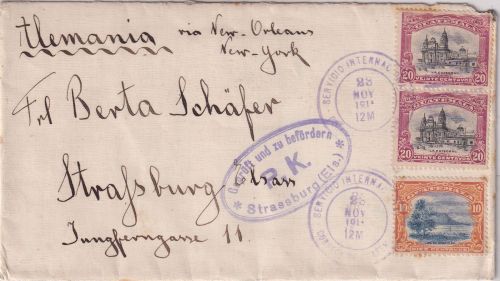 Alemania via New-Orleans
New-York
Frl Berta Schäfer
Straßburg Elsass
Jungferngasse 11.
Geprüft und zu befördern
P. K.
* Strassburg (Els.) *
SERVICIO INTERNAC
23
NOV
191
12M
SERVICIO INTERNA
23
NOV
191
12M
20 20
VEINTE CENTAVOS
20 20
VEINTE CENTAVOS
10 10